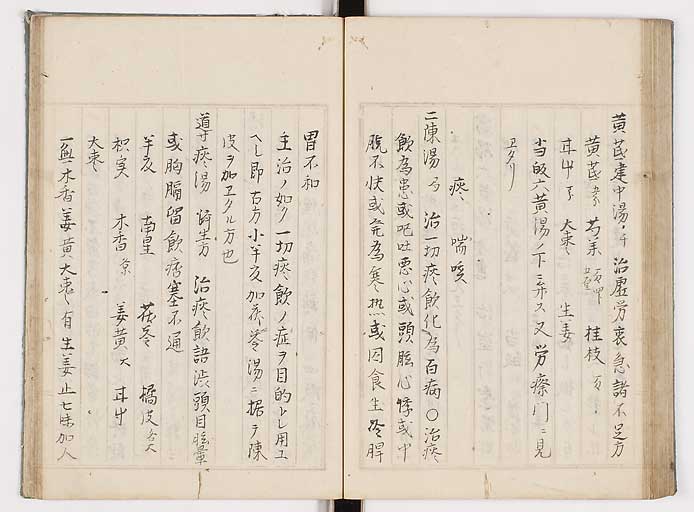 黄芪建中湯 治虚労衰急諸不足方
黄芪 芍薬 桂枝
甘艸 大棗 生姜
当皈六黄湯ノ下ニ弁ス又労瘵門ニ見
ヱタリ
痰 喘咳
二陳湯 治一切痰飲化為百病〇治痰
飲為患或吐悪心或頭眩心悸或中
脘不快或発為寒熱或因食生冷脾
胃不和
主治ノ如ク一切痰飲ノ症ヲ目的トし用ユ
へし即古方小半夏加茯苓湯ニ据テ陳
皮ヲ加ヱタル方也
導痰湯 済生方 治痰飲語渋頭目眩暈
或胸膈留飲痞塞不通
半夏 南星 茯苓 橘皮
枳実 木香 姜黄 甘艸
大棗
一無木香姜黄大棗有生姜止七味加人